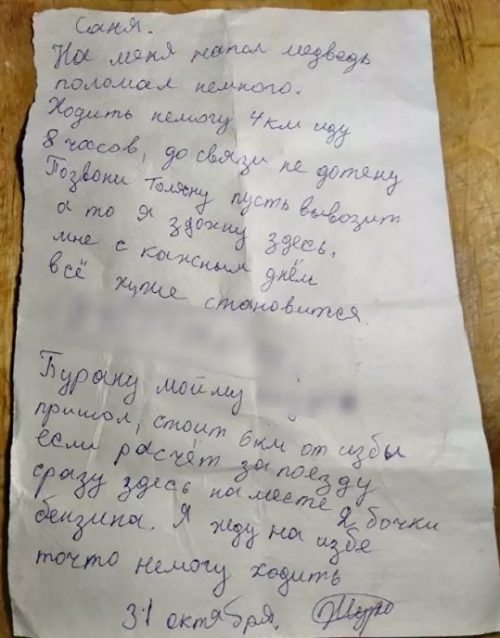 Саня.
На меня напал медведь
поломал немного.
Ходить немогу 4км иду
8 часов, до связи не дотену
Позвони Толяну пусть вывозит
а то я здохну здесь,
мне с кажным днём
всё хуже становится.
Бурану мойму
пришол, стоит 6км от избы
если расчёт за поезду
сразу здесь на месте 2 бочки
бензина. Я жду на избе
точто немогу ходить
31 октября.